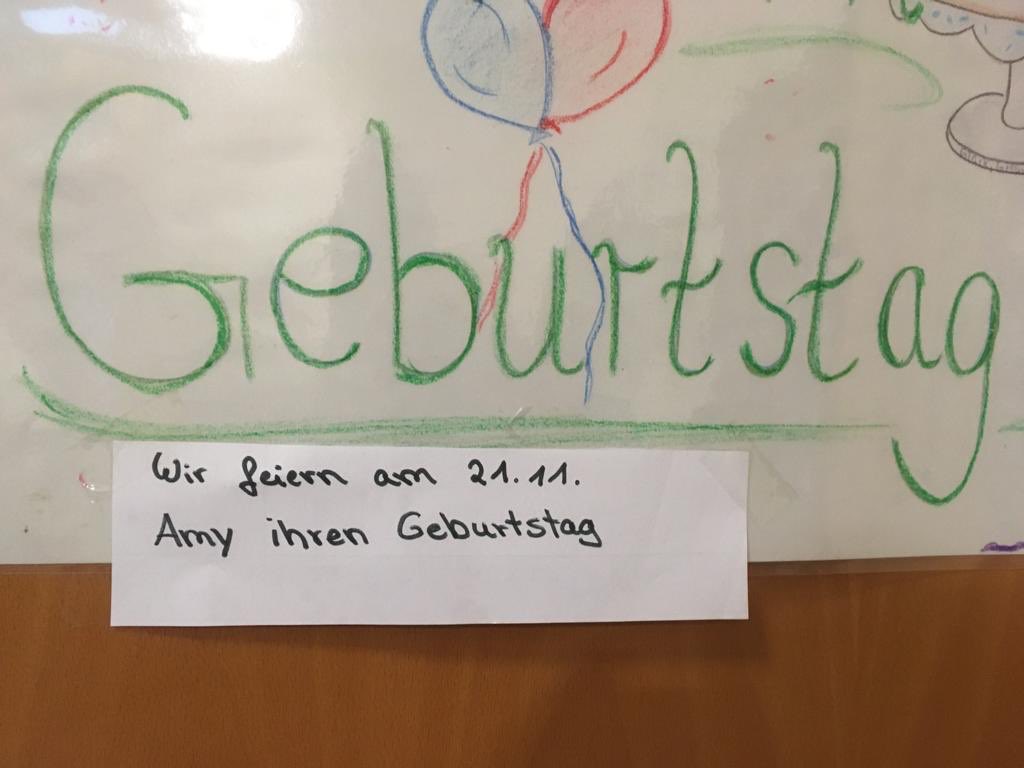 Geburtstag
Wir feiern am 21.11.
Amy ihren Geburtstag